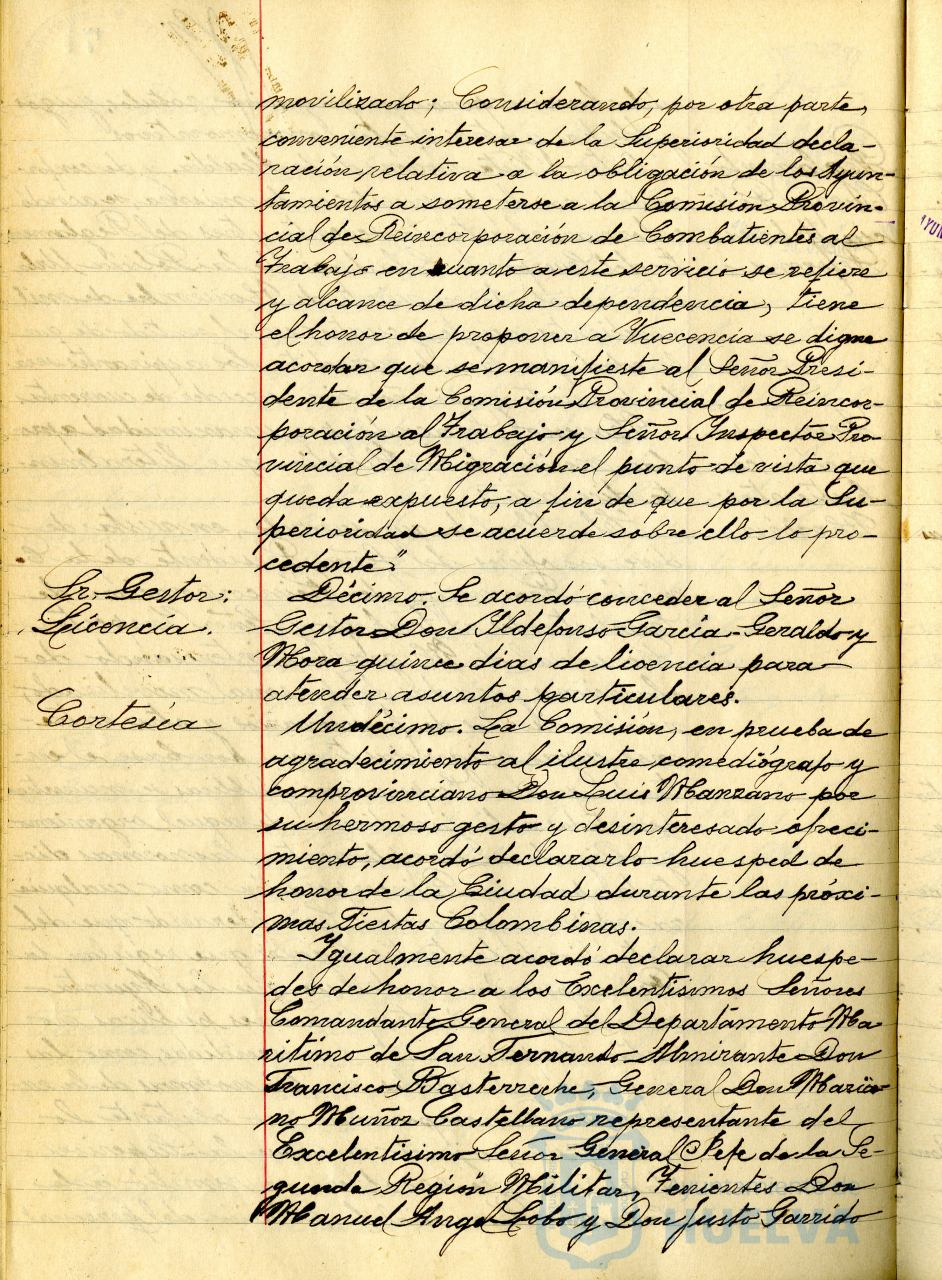 movilizado; Considerando, por otra parte,
conveniente interesar de la Superioridad decla-
ración relativa a la obligación de los Ayun-
tamientos a someterse a la Comisión Provin-
cial de Reincorporación de Combatientes al
Trabajo en cuanto a este servicio se refiere
y alcance de dicha dependencia, tiene
el honor de proponer a Vuecencia se digne
acordar que se manifieste al Señor Presi-
dente de la Comisión Provincial de Reincor-
poración al Trabajo y Señor Inspector Pro-
vincial de Migración el punto de vista que
queda expuesto, a fin de que por la Su-
perioridad se acuerde sobre ello lo pro-
cedente".
Sr. Gestor:
Licencia.
Décimo. Se acordó conceder al Señor
Gestor Don Ildefonso García-Geraldo y
Mora quince dias de licencia para
atender asuntos particulares.
Cortesía
Undécimo. La Comisión, en prueba de
agradecimiento al ilustre comediógrafo y
comprovinciano Don Luis Manzano por
su hermoso gesto y desinteresado ofreci-
miento, acordó declararlo huesped de
honor de la Ciudad durante las próxi-
mas Fiestas Colombinas.
Igualmente acordó declarar huespe-
des de honor a los Excelentisimos Señores
Comandante General del Departamento Ma
ritimo de San Fernando Almirante Don
Francisco Basterreche, General Don Maria
no Muñoz Castellano representante del
Excelentisimo Señor General Jefe de la Se-
gunda Región Militar, Tenientes Don
Manuel Angel Lobo y Don Justo Garrido
AYUN
HUELVA